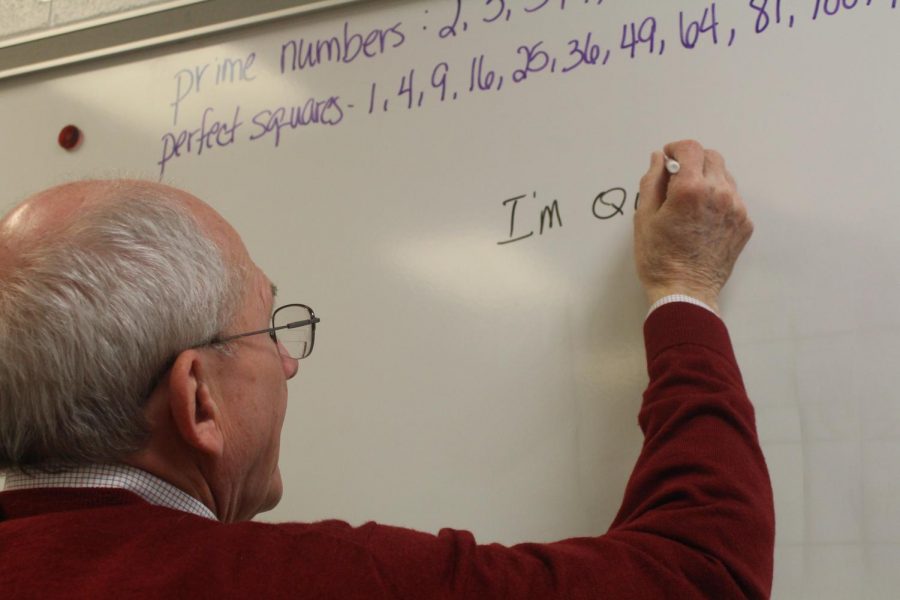 prime numbers: 2, 3,
perfect squares- 1, 4, 9, 16, 25, 36, 49, 64, 81, 100,
I'm